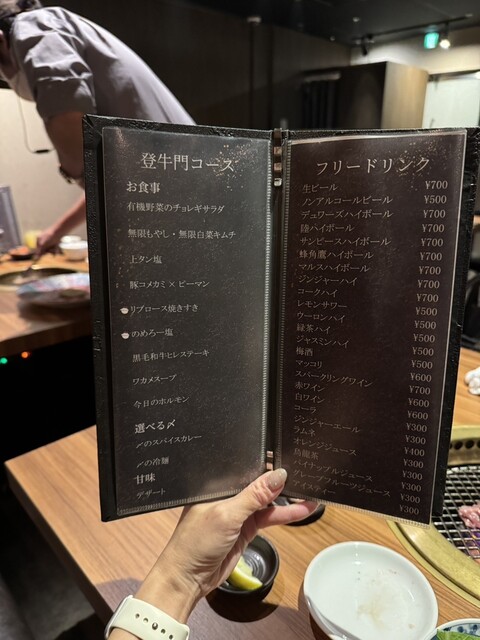 登牛門コース
お食事
有機野菜のチョレギサラダ
無限もやし・無限白菜キムチ
上タン塩
豚コメカミ×ピーマン
リブロース焼きすき
のめろー塩
黒毛和牛ヒレステーキ
ワカメスープ
今日のホルモン
選べる〆
〆のスパイスカレー
〆の冷麺
甘味
デザート
フリードリンク
生ビール ¥700
ノンアルコールビール ¥500
デュワーズハイボール ¥700
陸ハイボール ¥700
サンピースハイボール ¥700
蜂角鷹ハイボール ¥700
マルスハイボール ¥700
ジンジャーハイ ¥700
コークハイ ¥700
レモンサワー ¥500
ウーロンハイ ¥500
緑茶ハイ ¥500
ジャスミンハイ ¥500
梅酒 ¥500
マッコリ ¥500
スパークリングワイン ¥600
赤ワイン ¥700
白ワイン ¥600
コーラ ¥600
ジンジャーエール ¥300
ラムネ ¥300
オレンジジュース ¥400
烏龍茶 ¥300
パイナップルジュース ¥300
グレープフルーツジュース ¥300
アイスティー ¥300
¥300